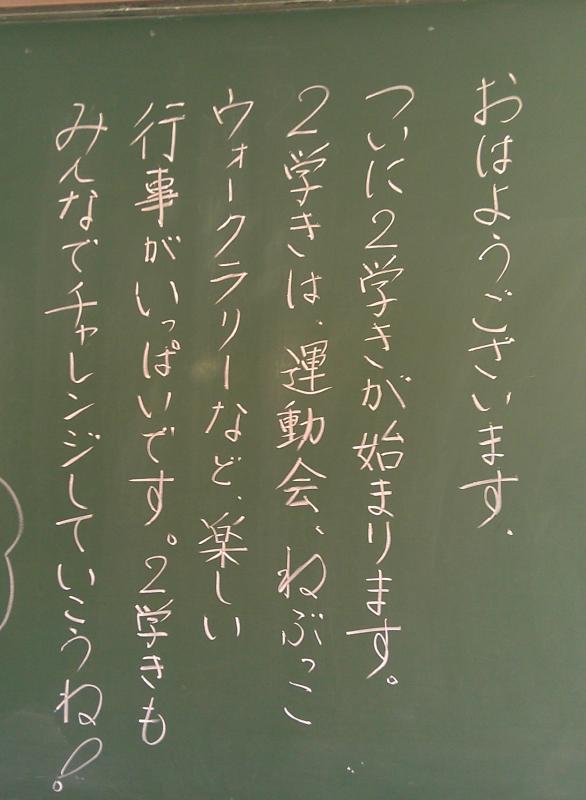 おはようございます.
ついに2学きが始まります。
2学きは、運動会、ねぶっこ
ウォークラリーなど、楽しい
行事がいっぱいです。2学きも
みんなでチャレンジしていこうね!